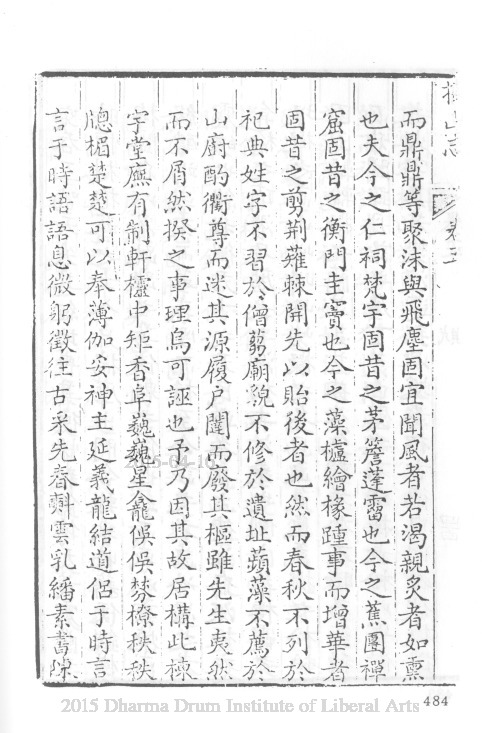 山志
卷五
而鼎鼎等聚沫與飛塵固宜聞風者若渴親炙者如熏
也夫今之仁祠梵宇固昔之茅簷蓬霤也今之蕉團禪
窟固昔之衡門圭竇也今之藻櫨繪椽踵事而增華者
固昔之剪荆薙棘開先以貽後者也然而春秋不列於
祀典姓字不習於僧芻廟貌不修於遺址蘋藻不薦於
山廚酌衢尊而迷其源履户闥而廢其樞雖先生夷然
而不屑然揆之事理烏可誣也予乃因其故居構此棟
宇堂廡有制軒櫺中矩香阜巍巍星龕俁俁棼橑秩秩
牕楣楚楚可以奉薄伽妥神主延義龍結道侶于時言
言于時語語息微躬徵往古采先春斟雲乳繙素書陳
2015-04-10
484
2015 Dharma Drum Institute of Liberal Arts